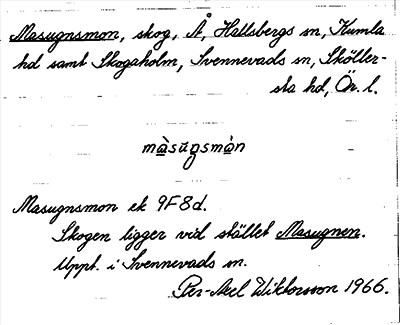 Masugnsmon, skog, Å, Hallsbergs sn, Kumla
hd samt Skogaholm, Svennevads sn, Sköller-
sta hd, Ör. l.
màsuŋsmòn
Masugnsmon ek 9F8d.
Skogen ligger vid stället Masugnen.
Uppt. i Svennevads sn.
Per-Axel Wiktorsson 1966.